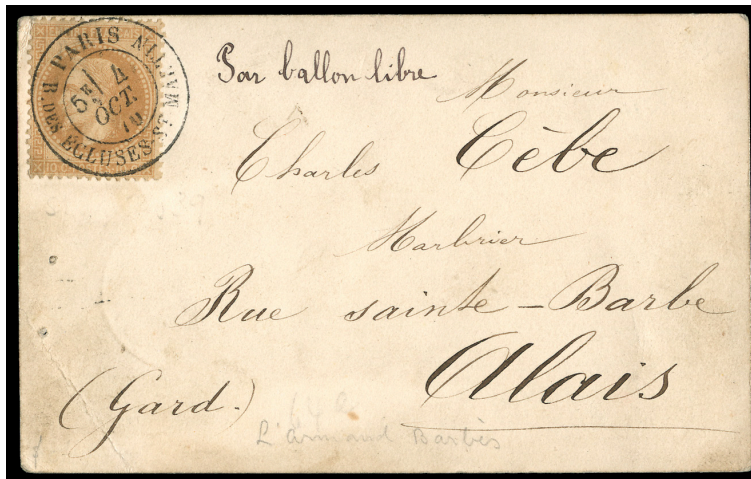 PARIS
R. DES ECLUSES-ST MARTIN
5E 4
OCT.
70
Par ballon libre
Monsieur
Charles Cèbe
Marbrier
Rue sainte-Barbe
Alais
(Gard.)
L'Armand Barbès